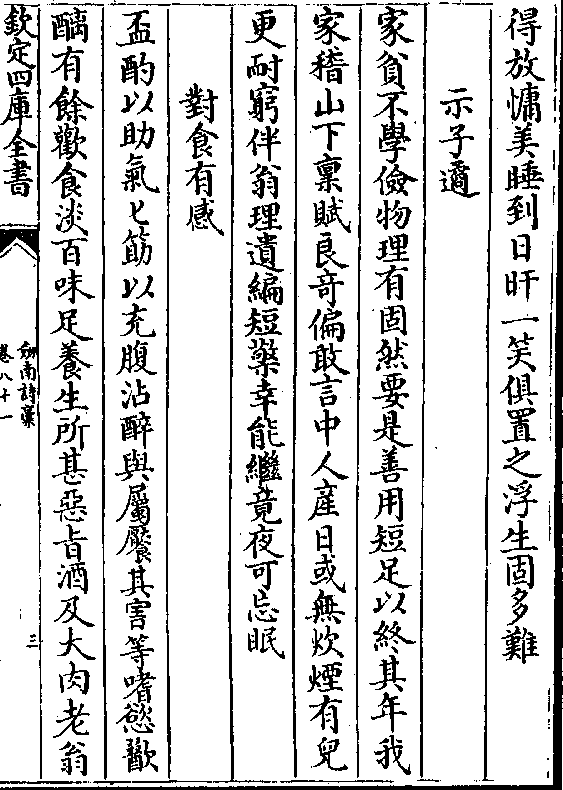 得放慵美睡到日旰一笑俱置之浮生固多難
示子遹
家貧不學儉物理有固然要是善用短足以終其年我
家稽山下稟賦良奇偏敢言中人産日或無炊煙有兒
更耐窮伴翁理遺編短檠幸能繼竟夜可忘眠
對食有感
盃酌以助氣匕筯以充腹沾醉與屬饜其害等嗜慾歠
醨有餘歡食淡百味足養生所甚惡㫖酒及大肉老翁
欽定四庫全書
劍南詩藁
卷八十一
三